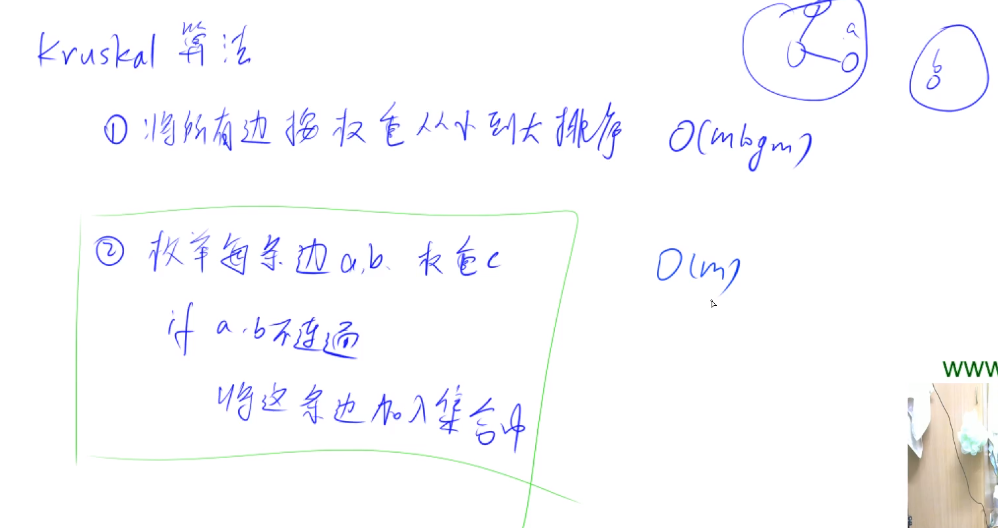 Kruskal 算法
a
b
① 将所有边按权重从小到大排序 O(mlogm)
② 枚举每条边a,b、权重c O(m)
if a,b不连通
将这条边加入集合中
www